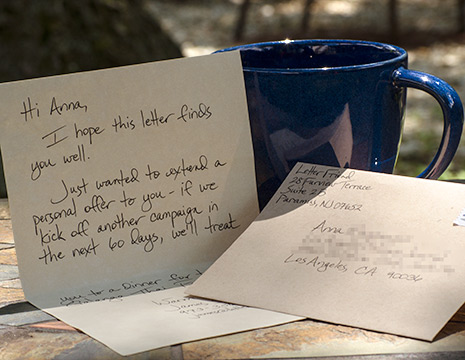 Hi Anna,
I hope this letter finds
you well.
Just wanted to extend a
personal offer to you - if we
kick off another campaign in
the next 60 days, we'll treat
you to a Dinner for
Letter Friend
Terrace
Suite 2B
Paramus, NJ 07652
Anna
Los Angeles, CA 90036